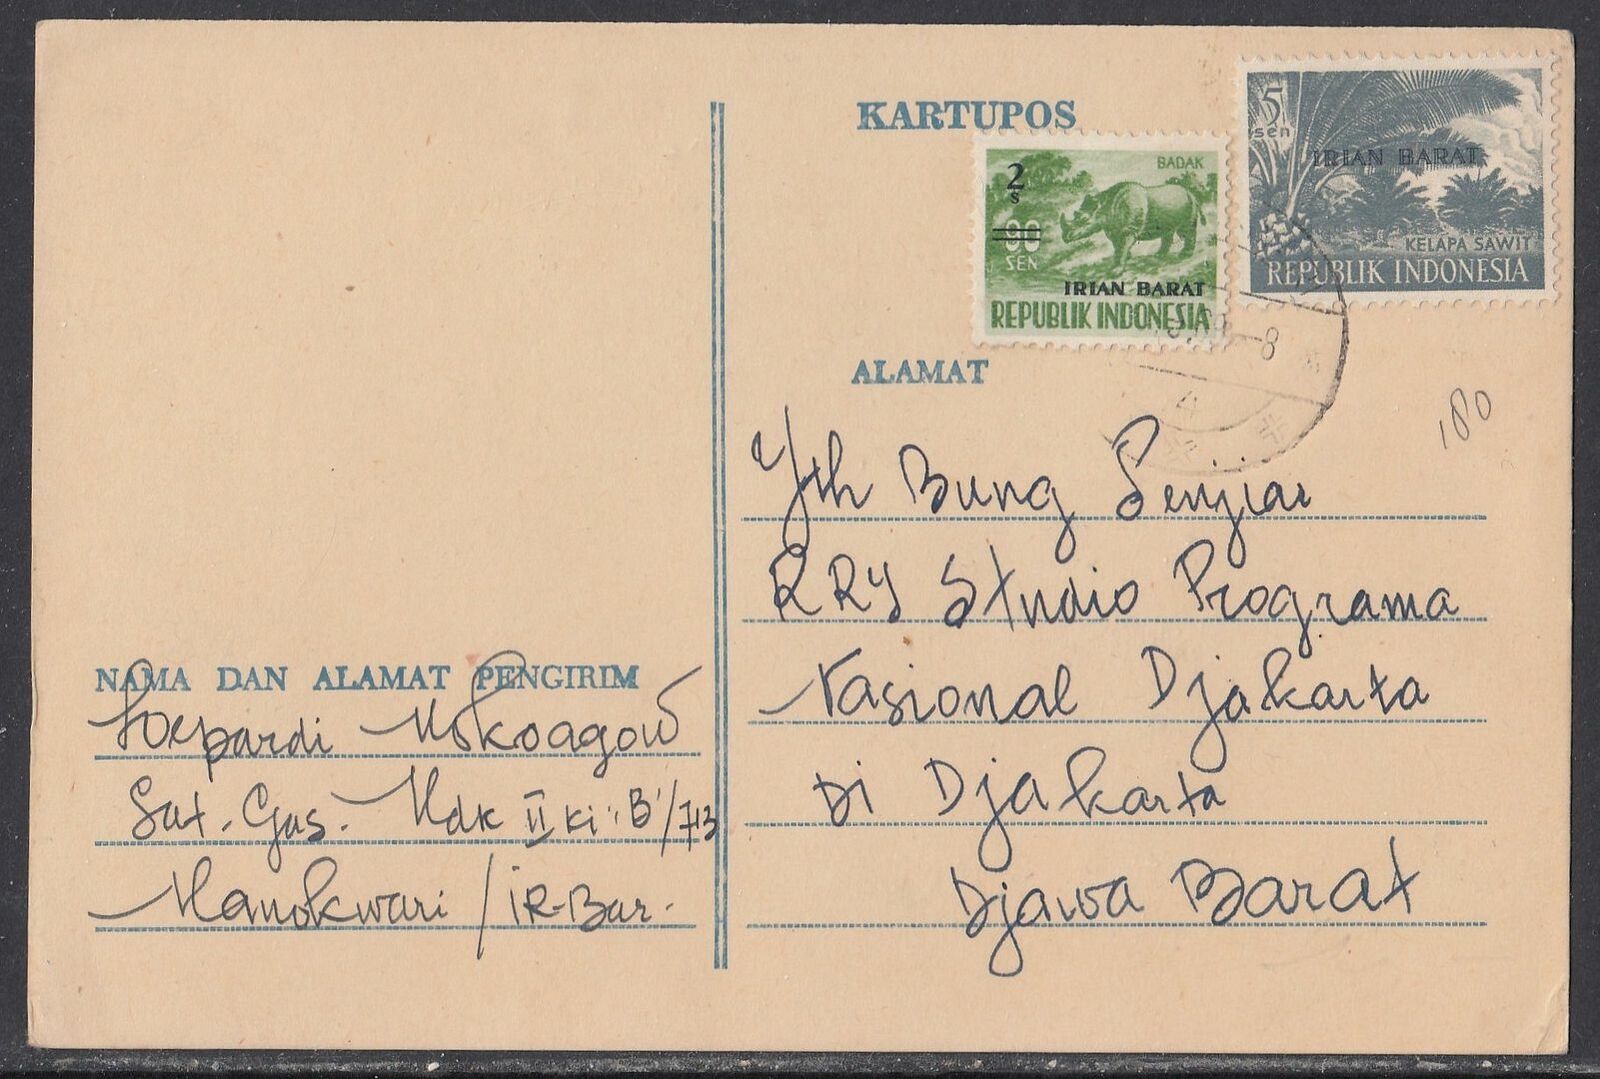 KARTUPOS
2
s
BADAK
90
SEN
IRIAN BARAT
REPUBLIK INDONESIA
5
sen
IRIAN BARAT
KELAPA SAWIT
REPUBLIK INDONESIA
8
ALAMAT
180
Yth Bung Senjiar
RRY Studio Programa
Nasional Djakarta
Di Djakarta
Djawa Barat
NAMA DAN ALAMAT PENGIRIM
Soepardi Mokoagow
Sat. Gas. Mdk II Ki "B"/713
Manokwari / IR-Bar.